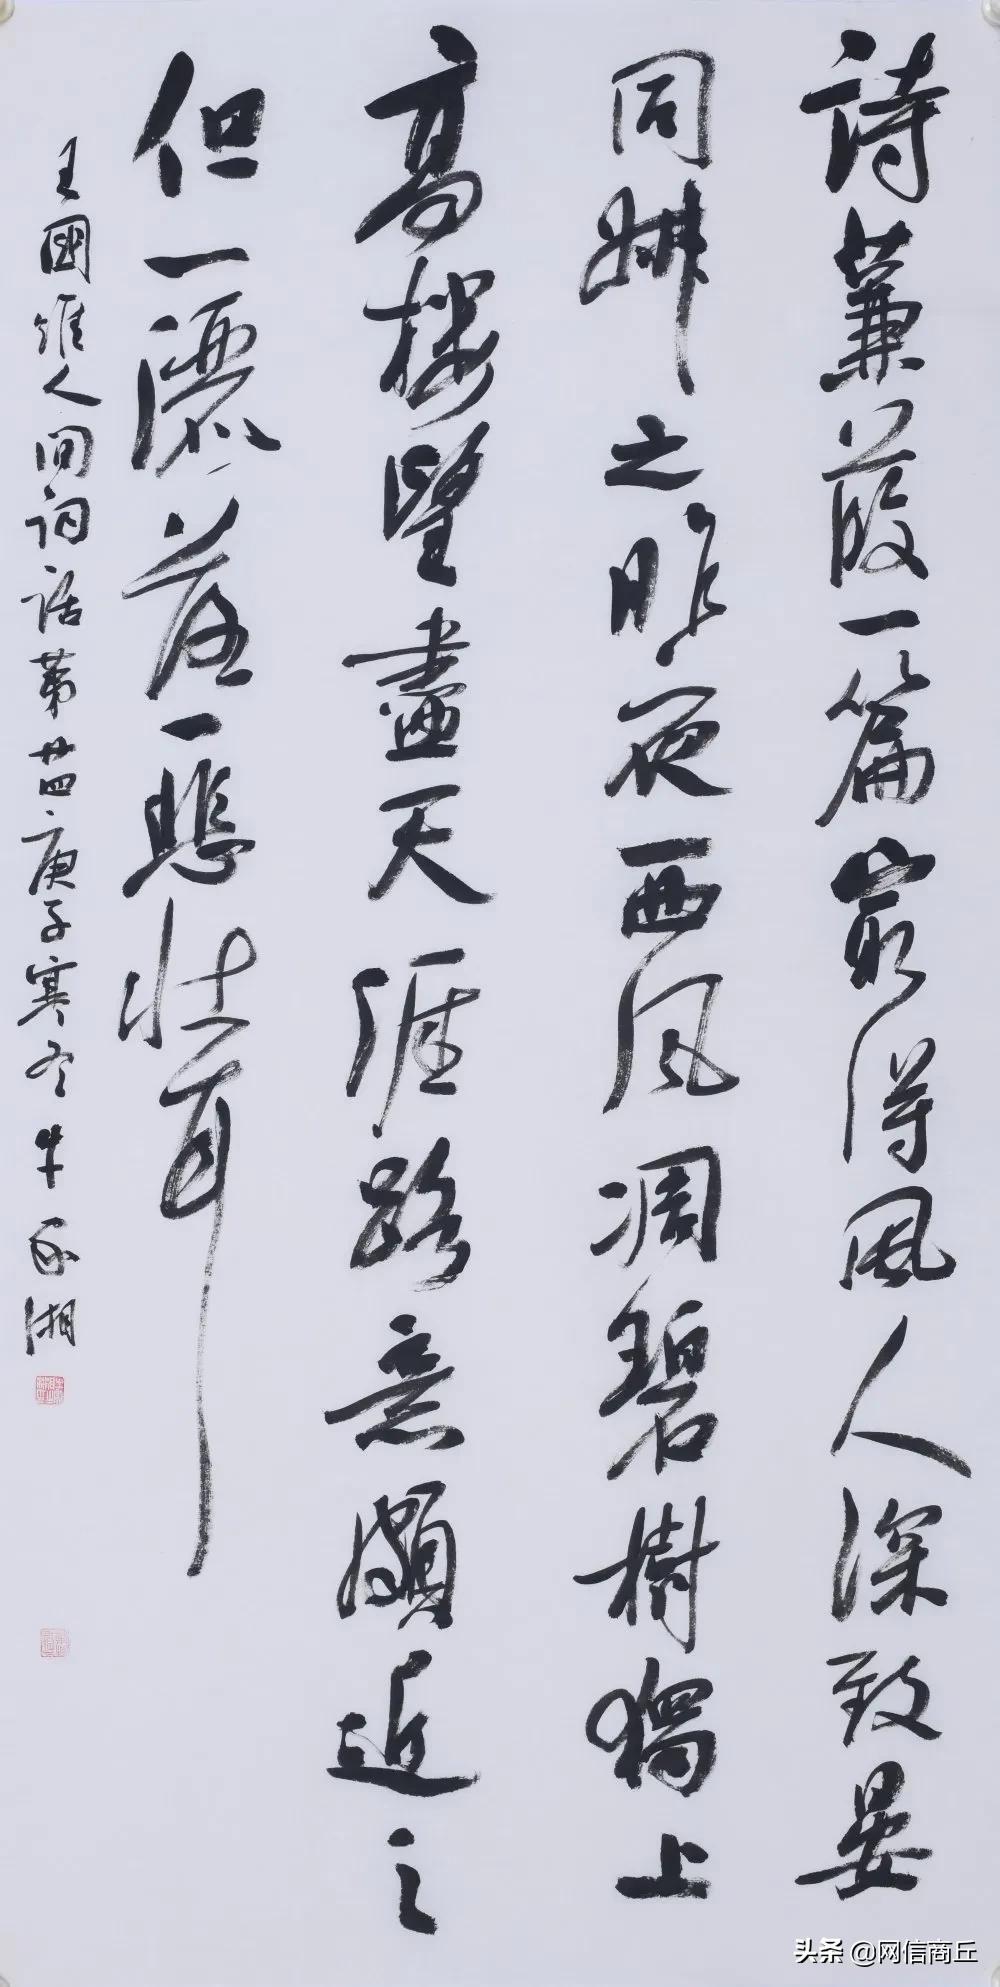 詩蒹葭一篇最得風人深致晏
同叔之昨夜西风凋碧樹獨上
高樓望盡天涯路意頗近之
但一灑落一悲壯耳
王國維人間詞話第廿四庚子寒冬牛湘
头条 @网信商丘